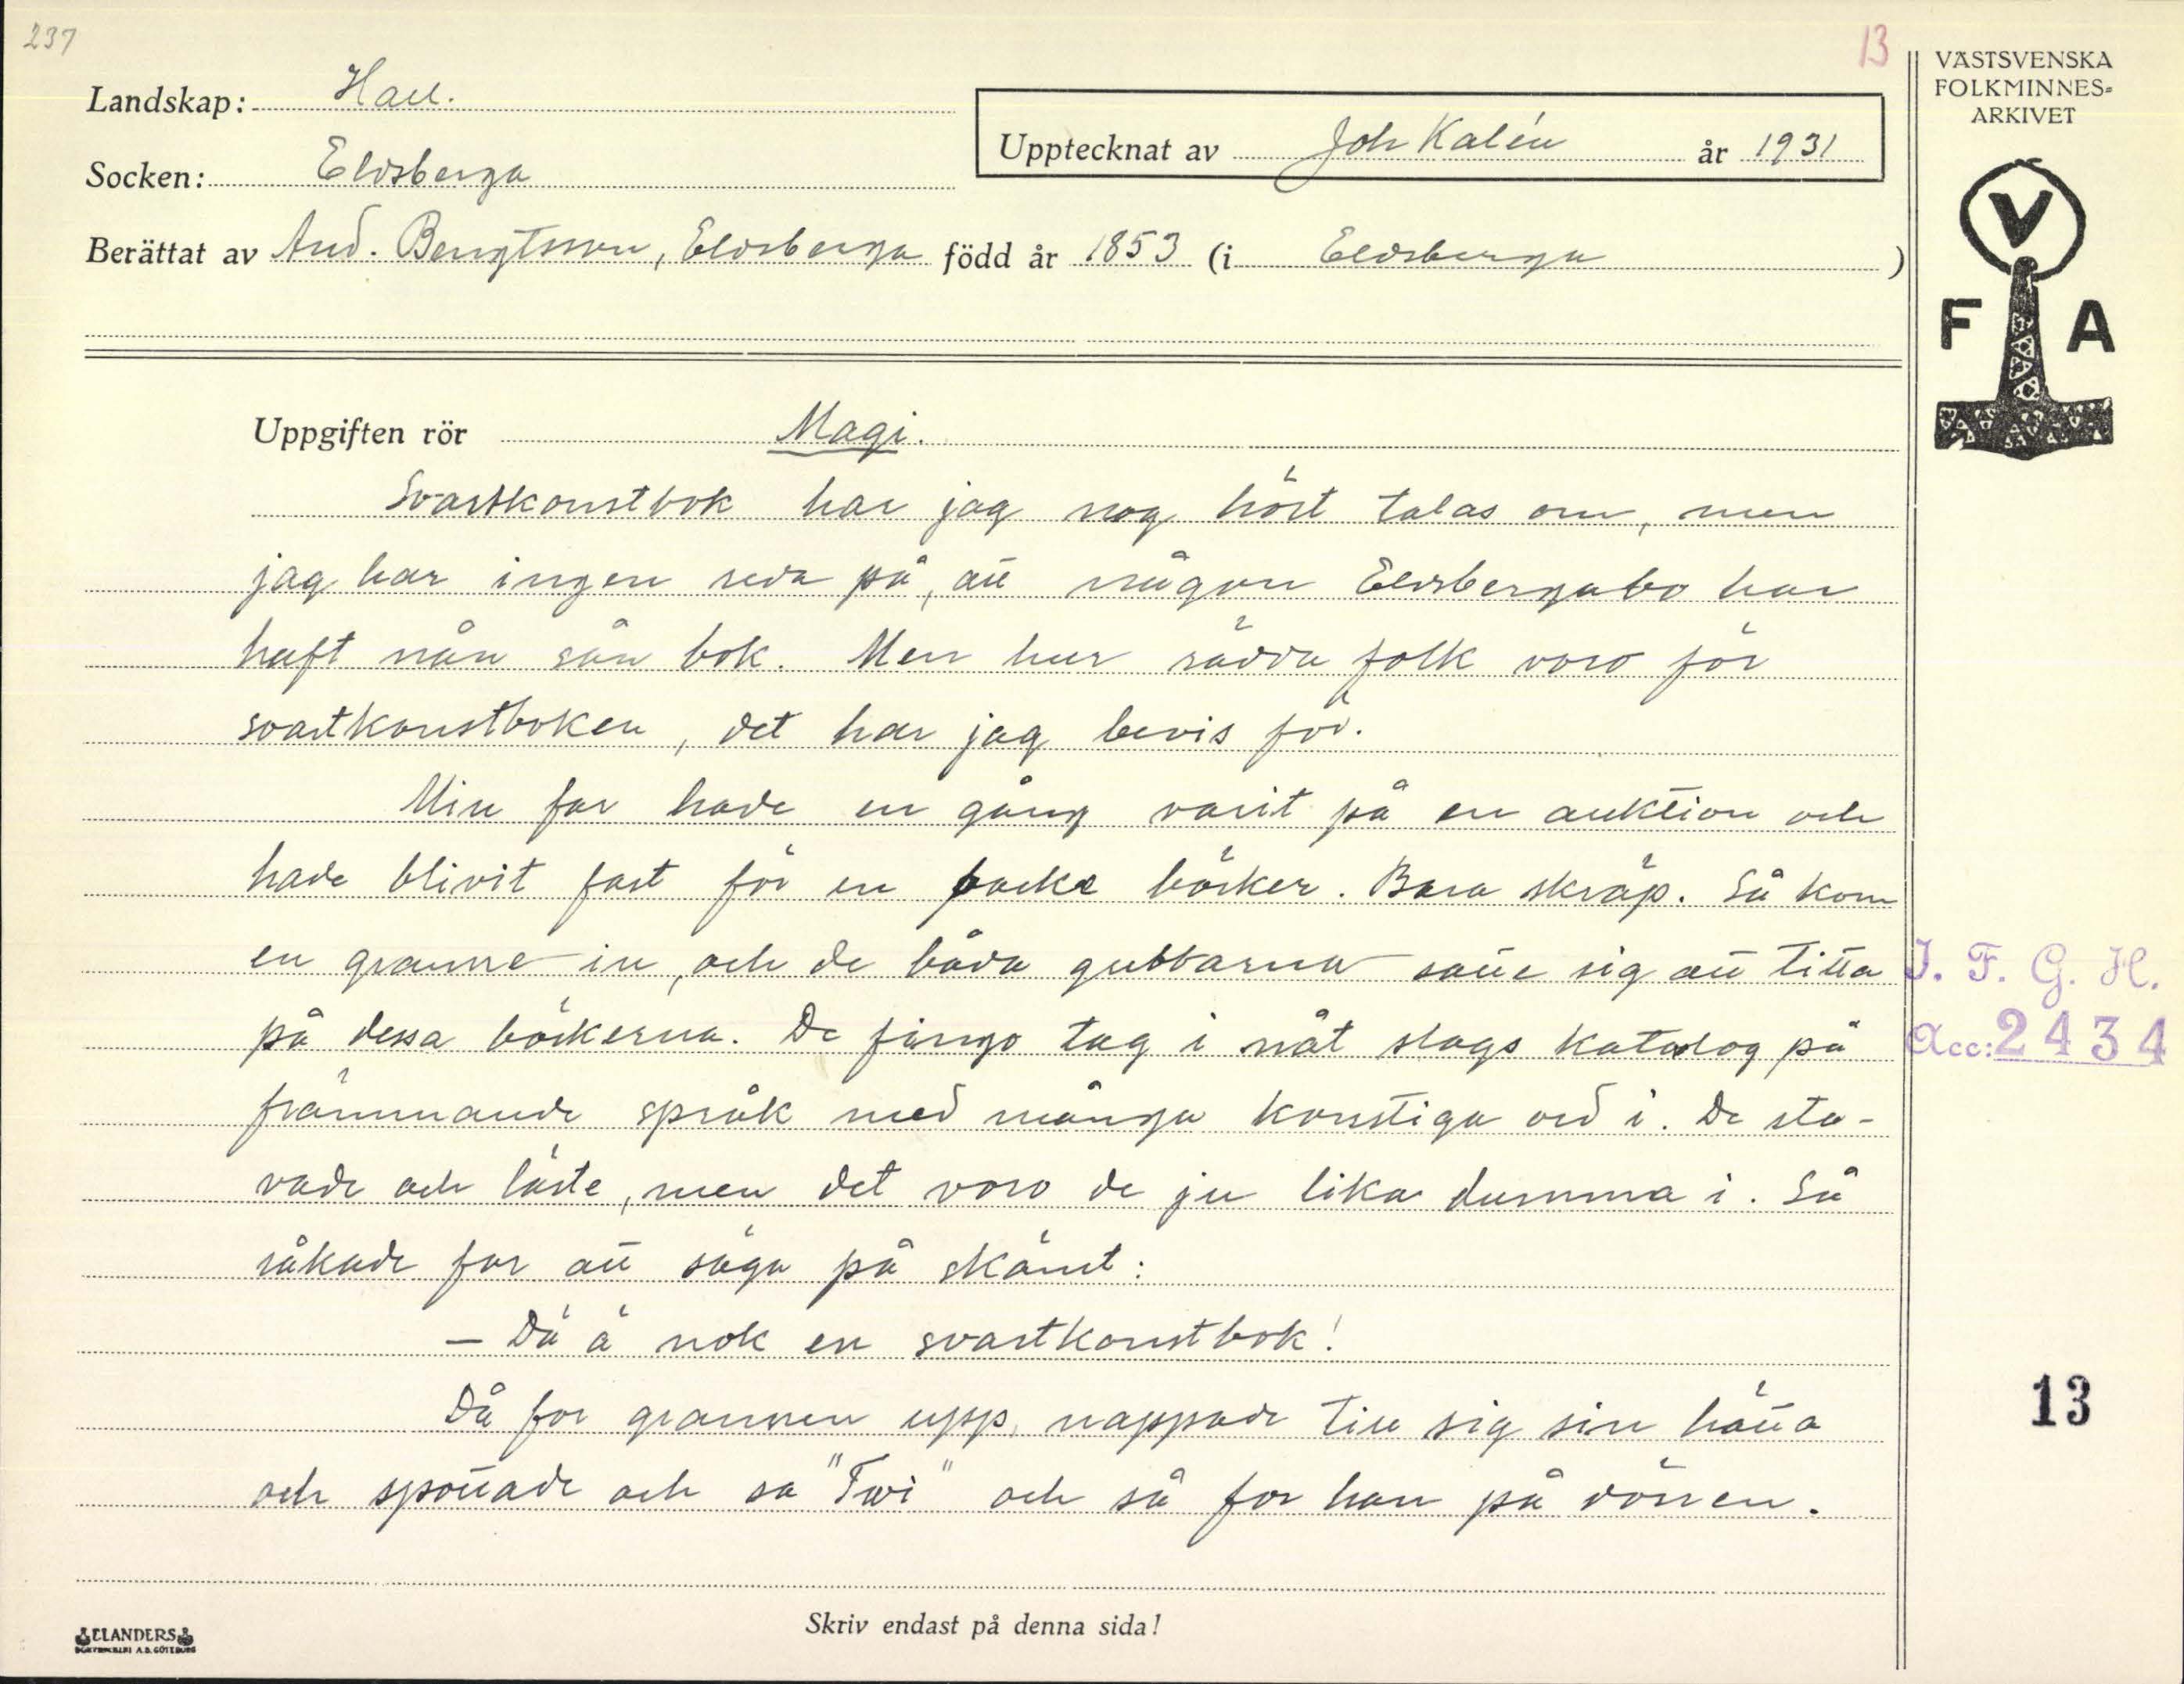 237
13
VÄSTSVENSKA
FOLKMINNES=
ARKIVET
Landskap: Hall.
Upptecknat av Joh Kalén år 1931
Socken: Eldsberga
Berättat av And. Bengtsson, Eldsberga född år 1853 (i Eldsberga )
V
F A
Uppgiften rör Magi.
Svartkonstbok har jag nog hört talas om, men
jag har ingen reda på, att någon Eldsbergabo har
haft nån sån bok. Men hur rädda folk voro för
svartkonstboken, det har jag bevis för.
Min far hade en gång varit på en auktion och
hade blivit fast för en packe böcker. Bara skräp. Så kom
en granne in, och de båda gubbarna satte sig att titta
på dessa böckerna. De fingo tag i nåt slags katalog på
främmande språk med många konstiga ord i. De sta-
vade och läste, men det voro de ju lika dumma i. Så
råkade far att säga på skämt:
- Dä ä nok en svartkonstbok!
Då for grannen upp, nappade till sig sin hätta
och spottade och sa "Twi" och så for han på dörren.
I. F. G. H.
Acc: 2434
13
Skriv endast på denna sida!
ELANDERS
BOKTRYCKERI A.B. GÖTEBORG